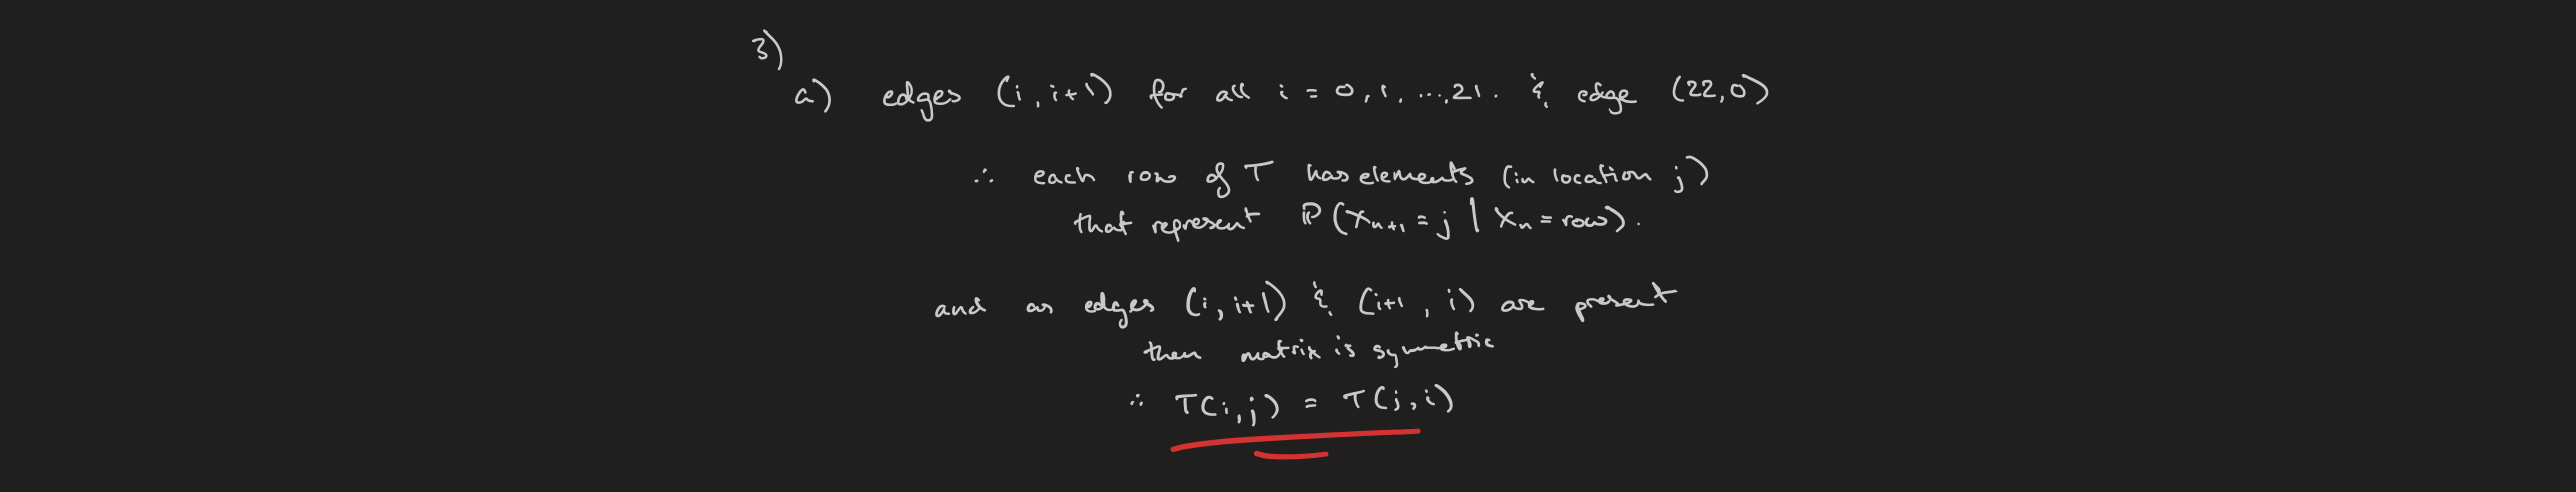 3)
a) edges (i, i+1) for all i = 0, 1, ..., 21. & edge (22, 0)
∴ each row of T has elements (in location j)
that represent ℙ(Xₙ₊₁ = j | Xₙ = row).
and as edges (i, i+1) & (i+1, i) are present
then matrix is symmetric
∴ T(i, j) = T(j, i)